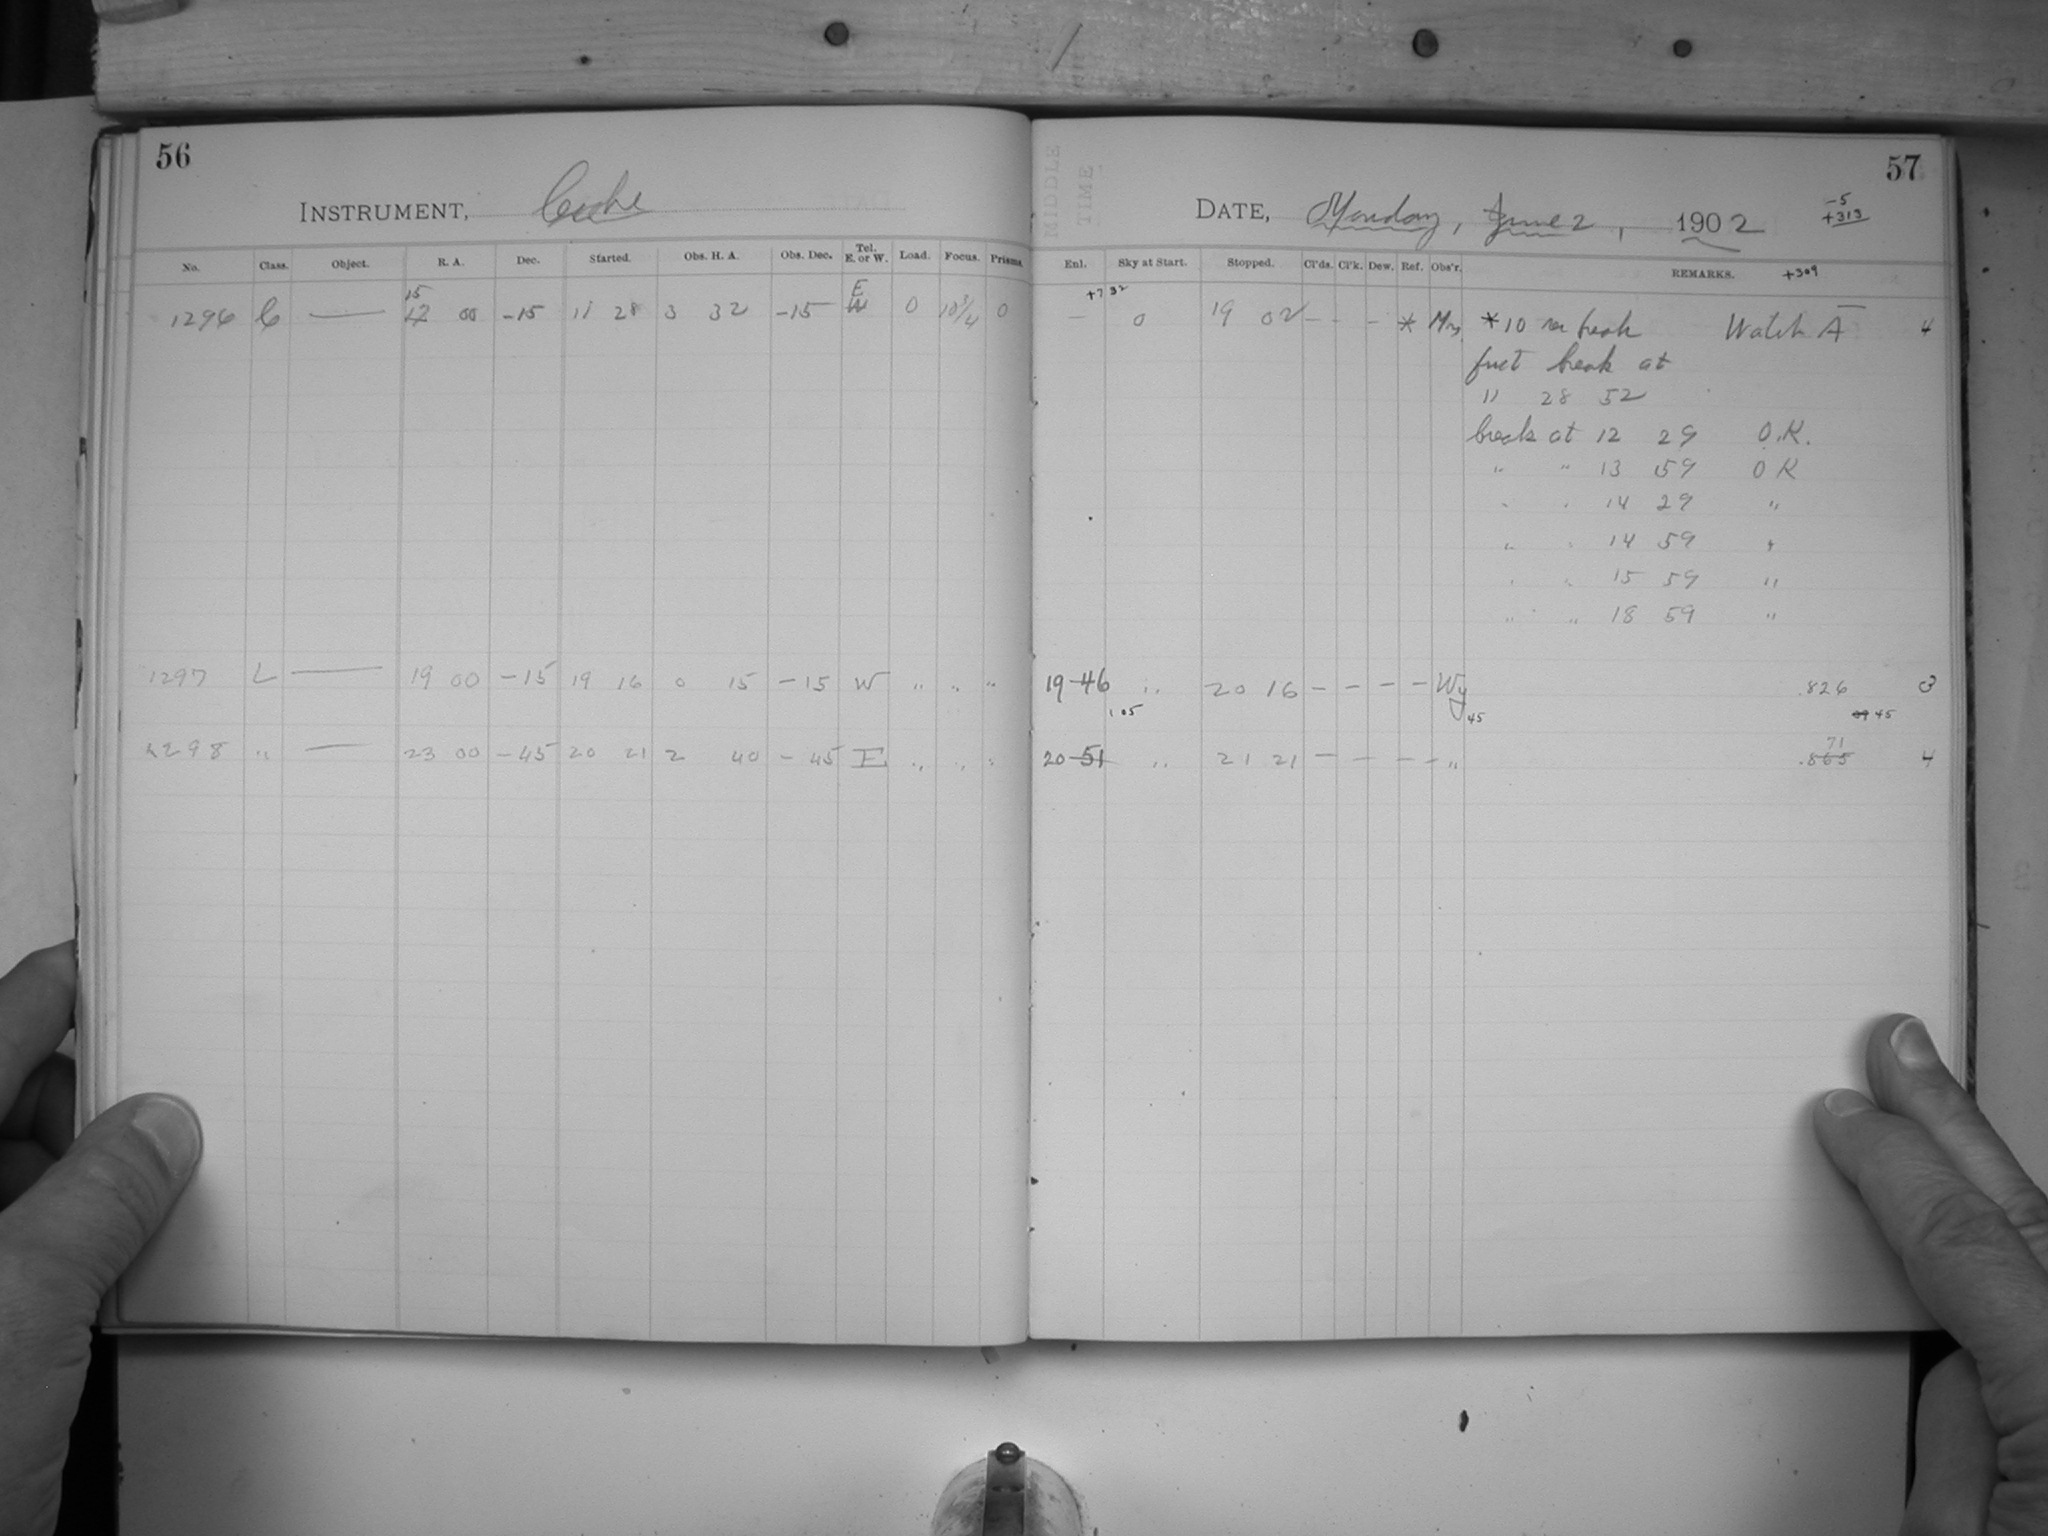 56
INSTRUMENT, Cooke
No. Class. Object. R. A. Dec. Started. Obs. H. A. Obs. Dec. Tel. E. or W. Load. Focus. Prisms.
15 E
1296 C — 17 00 -15 11 28 3 32 -15 W 0 10 3/4 0
1297 L — 19 00 -15 19 16 0 15 -15 W " " "
1298 " — 23 00 -45 20 21 2 40 -45 E " " "
57
MIDDLE TIME
DATE, Monday, June 2, 1902
-5
+313
Enl. Sky at Start. Stopped. Cl'ds. Cl'k. Dew. Ref. Obs'r. REMARKS. +309
+7 32
— 0 19 02 - - - * *10 break Watch A 4
first break at
11 28 52
break at 12 29 O.K.
" " 13 59 OK
" " 14 29 "
" " 14 59 "
" " 15 59 "
" " 18 59 "
19 46 " 20 16 - - - - Wy .826 3
1 05 45 45
71
20 51 " 21 21 - - - - " .865 4